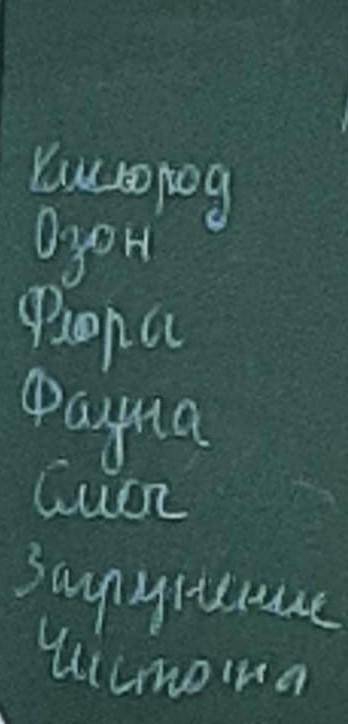 Кислород
Озон
Флора
Фауна
Смог
Загрузнение
Чистота